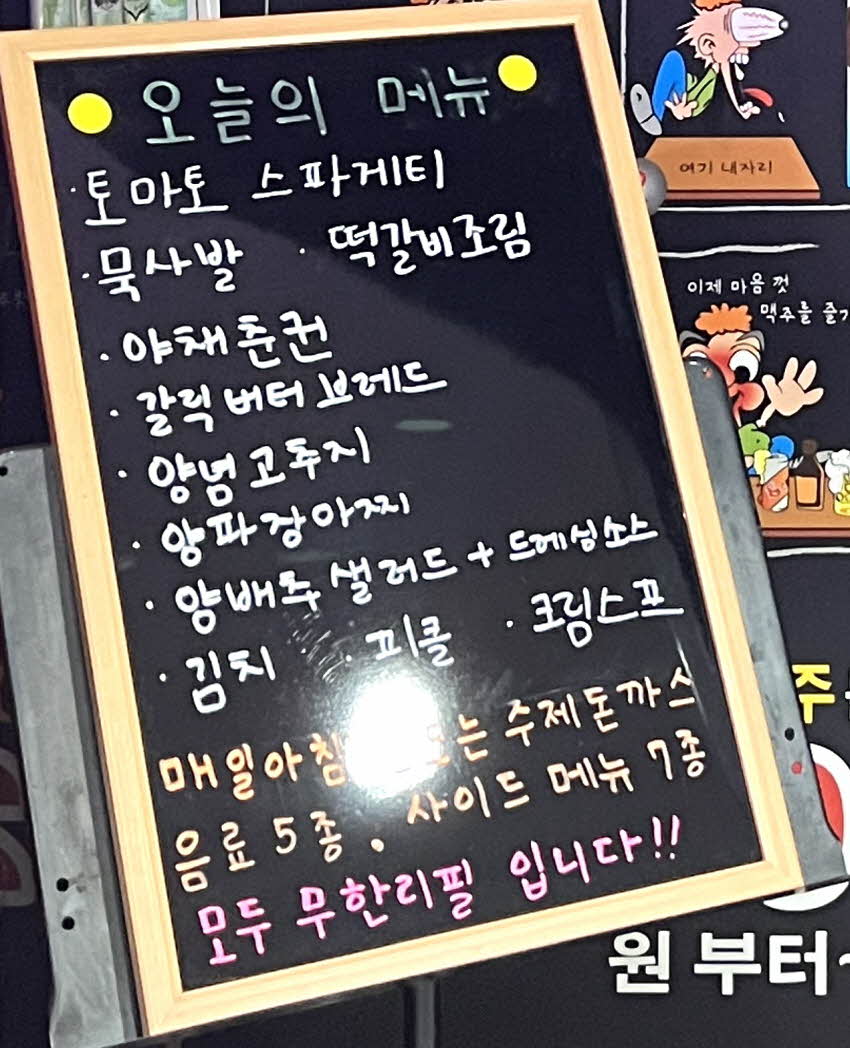 오늘의 메뉴
· 토마토 스파게티
· 묵사발 · 떡갈비조림
· 야채춘권
· 갈릭버터브레드
· 양념고추지
· 양파장아찌
· 양배추샐러드 + 드레싱소스
· 김치 · 피클 · 크림스프
매일아침 는 수제돈까스
음료 5종 . 사이드 메뉴 7종
모두 무한리필 입니다!!
여기 내자리
이제 마음 껏
맥주를 즐기
주
원 부터~